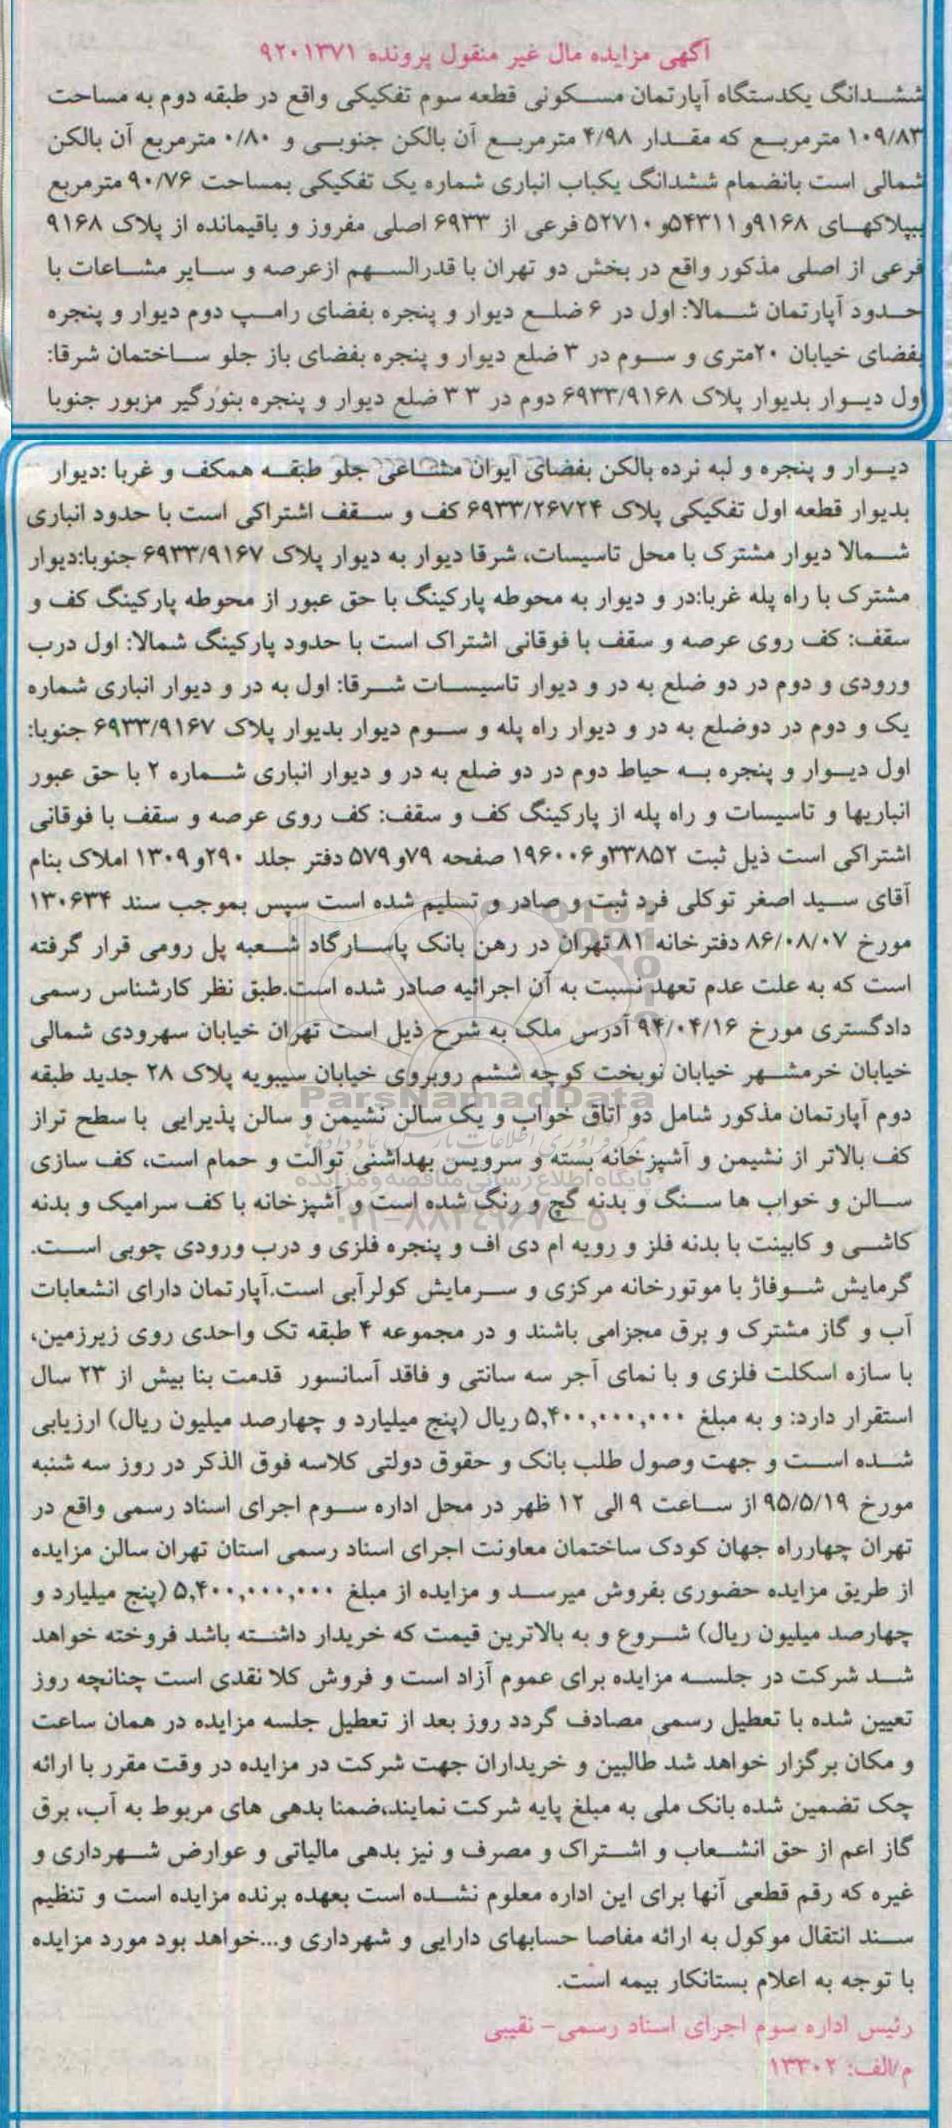 آگهی مزایده مال غیر منقول پرونده ۹۲۰۱۳۷۱
ششدانگ یکدستگاه آپارتمان مسکونی قطعه سوم تفکیکی واقع در طبقه دوم به مساحت
۱۰۹/۸۳ مترمربع که مقدار ۴/۹۸ مترمربع آن بالکن جنوبی و ۰/۸۰ مترمربع آن بالکن
شمالی است بانضمام ششدانگ یکباب انباری شماره یک تفکیکی بمساحت ۹۰/۷۶ مترمربع
بپلاکهای ۹۱۶۸و۵۴۳۱۱و۵۲۷۱۰ فرعی از ۶۹۳۳ اصلی مفروز و باقیمانده از پلاک ۹۱۶۸
فرعی از اصلی مذکور واقع در بخش دو تهران با قدرالسهم ازعرصه و سایر مشاعات با
حدود آپارتمان شمالا: اول در ۶ ضلع دیوار و پنجره بفضای رامپ دوم دیوار و پنجره
بفضای خیابان ۲۰متری و سوم در ۳ ضلع دیوار و پنجره بفضای باز جلو ساختمان شرقا:
اول دیوار بدیوار پلاک ۶۹۳۳/۹۱۶۸ دوم در ۳ ۳ ضلع دیوار و پنجره بنورگیر مزبور جنوبا
دیوار و پنجره و لبه نرده بالکن بفضای ایوان مشاعی جلو طبقه همکف و غربا :دیوار
بدیوار قطعه اول تفکیکی پلاک ۶۹۳۳/۲۶۷۲۴ کف و سقف اشتراکی است با حدود انباری
شمالا دیوار مشترک با محل تاسیسات، شرقا دیوار به دیوار پلاک ۶۹۳۳/۹۱۶۷ جنوبا:دیوار
مشترک با راه پله غربا:در و دیوار به محوطه پارکینگ با حق عبور از محوطه پارکینگ کف و
سقف: کف روی عرصه و سقف با فوقانی اشتراک است با حدود پارکینگ شمالا: اول درب
ورودی و دوم در دو ضلع به در و دیوار تاسیسات شرقا: اول به در و دیوار انباری شماره
یک و دوم در دوضلع به در و دیوار راه پله و سوم دیوار بدیوار پلاک ۶۹۳۳/۹۱۶۷ جنوبا:
اول دیوار و پنجره به حیاط دوم در دو ضلع به در و دیوار انباری شماره ۲ با حق عبور
انباریها و تاسیسات و راه پله از پارکینگ کف و سقف: کف روی عرصه و سقف با فوقانی
اشتراکی است ذیل ثبت ۳۳۸۵۲و۱۹۶۰۰۶ صفحه ۷۹و۵۷۹ دفتر جلد ۲۹۰و۱۳۰۹ املاک بنام
آقای سید اصغر توکلی فرد ثبت و صادر و تسلیم شده است سپس بموجب سند ۱۳۰۶۳۴
مورخ ۸۶/۰۸/۰۷ دفترخانه ۸۱ تهران در رهن بانک پاسارگاد شعبه پل رومی قرار گرفته
است که به علت عدم تعهد نسبت به آن اجرائیه صادر شده است.طبق نظر کارشناس رسمی
دادگستری مورخ ۹۴/۰۴/۱۶ آدرس ملک به شرح ذیل است تهران خیابان سهرودی شمالی
خیابان خرمشهر خیابان نوبخت کوچه ششم روبروی خیابان سیبویه پلاک ۲۸ جدید طبقه
ParsNamadData
دوم آپارتمان مذکور شامل دو اتاق خواب و یک سالن نشیمن و سالن پذیرایی با سطح تراز
کف بالاتر از نشیمن و آشپزخانه بسته و سرویس بهداشتی توالت و حمام است، کف سازی
پایگاه اطلاع رسانی مناقصه و مزایده
سالن و خواب ها سنگ و بدنه گچ و رنگ شده است و آشپزخانه با کف سرامیک و بدنه
کاشی و کابینت با بدنه فلز و رویه ام دی اف و پنجره فلزی و درب ورودی چوبی است.
گرمایش شوفاژ با موتورخانه مرکزی و سرمایش کولرآبی است.آپارتمان دارای انشعابات
آب و گاز مشترک و برق مجزامی باشند و در مجموعه ۴ طبقه تک واحدی روی زیرزمین،
با سازه اسکلت فلزی و با نمای آجر سه سانتی و فاقد آسانسور قدمت بنا بیش از ۲۳ سال
استقرار دارد: و به مبلغ ۵,۴۰۰,۰۰۰,۰۰۰ ریال (پنج میلیارد و چهارصد میلیون ریال) ارزیابی
شده است و جهت وصول طلب بانک و حقوق دولتی کلاسه فوق الذکر در روز سه شنبه
مورخ ۹۵/۵/۱۹ از ساعت ۹ الی ۱۲ ظهر در محل اداره سوم اجرای اسناد رسمی واقع در
تهران چهارراه جهان کودک ساختمان معاونت اجرای اسناد رسمی استان تهران سالن مزایده
از طریق مزایده حضوری بفروش میرسد و مزایده از مبلغ ۵,۴۰۰,۰۰۰,۰۰۰ (پنج میلیارد و
چهارصد میلیون ریال) شروع و به بالاترین قیمت که خریدار داشته باشد فروخته خواهد
شد شرکت در جلسه مزایده برای عموم آزاد است و فروش کلا نقدی است چنانچه روز
تعیین شده با تعطیل رسمی مصادف گردد روز بعد از تعطیل جلسه مزایده در همان ساعت
و مکان برگزار خواهد شد طالبین و خریداران جهت شرکت در مزایده در وقت مقرر با ارائه
چک تضمین شده بانک ملی به مبلغ پایه شرکت نمایند،ضمنا بدهی های مربوط به آب، برق
گاز اعم از حق انشعاب و اشتراک و مصرف و نیز بدهی مالیاتی و عوارض شهرداری و
غیره که رقم قطعی آنها برای این اداره معلوم نشده است بعهده برنده مزایده است و تنظیم
سند انتقال موکول به ارائه مفاصا حسابهای دارایی و شهرداری و...خواهد بود مورد مزایده
با توجه به اعلام بستانکار بیمه است.
رئیس اداره سوم اجرای اسناد رسمی- نقیبی
م/الف: ۱۳۳۰۲